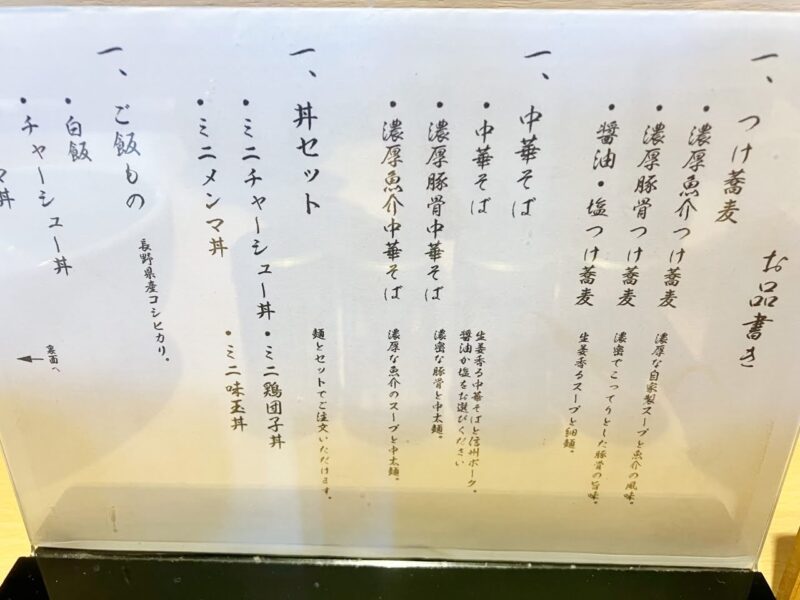 お品書き
一、つけ蕎麦
・濃厚魚介つけ蕎麦
濃厚な自家製スープと魚介の風味。
・濃厚豚骨つけ蕎麦
濃密でこってりとした豚骨の旨味。
・醤油・塩つけ蕎麦
生姜香るスープと細麺。
一、中華そば
・中華そば
生姜香る中華そばと信州ポーク。
醤油か塩をお選びください
・濃厚豚骨中華そば
濃密な豚骨と中太麺。
・濃厚魚介中華そば
濃厚な魚介のスープと中太麺。
一、丼セット
麺とセットでご注文いただけます。
・ミニチャーシュー丼
・ミニ鶏団子丼
・ミニメンマ丼
・ミニ味玉丼
一、ご飯もの
長野県産コシヒカリ。
・白飯
・チャーシュー丼
マ丼
裏面へ